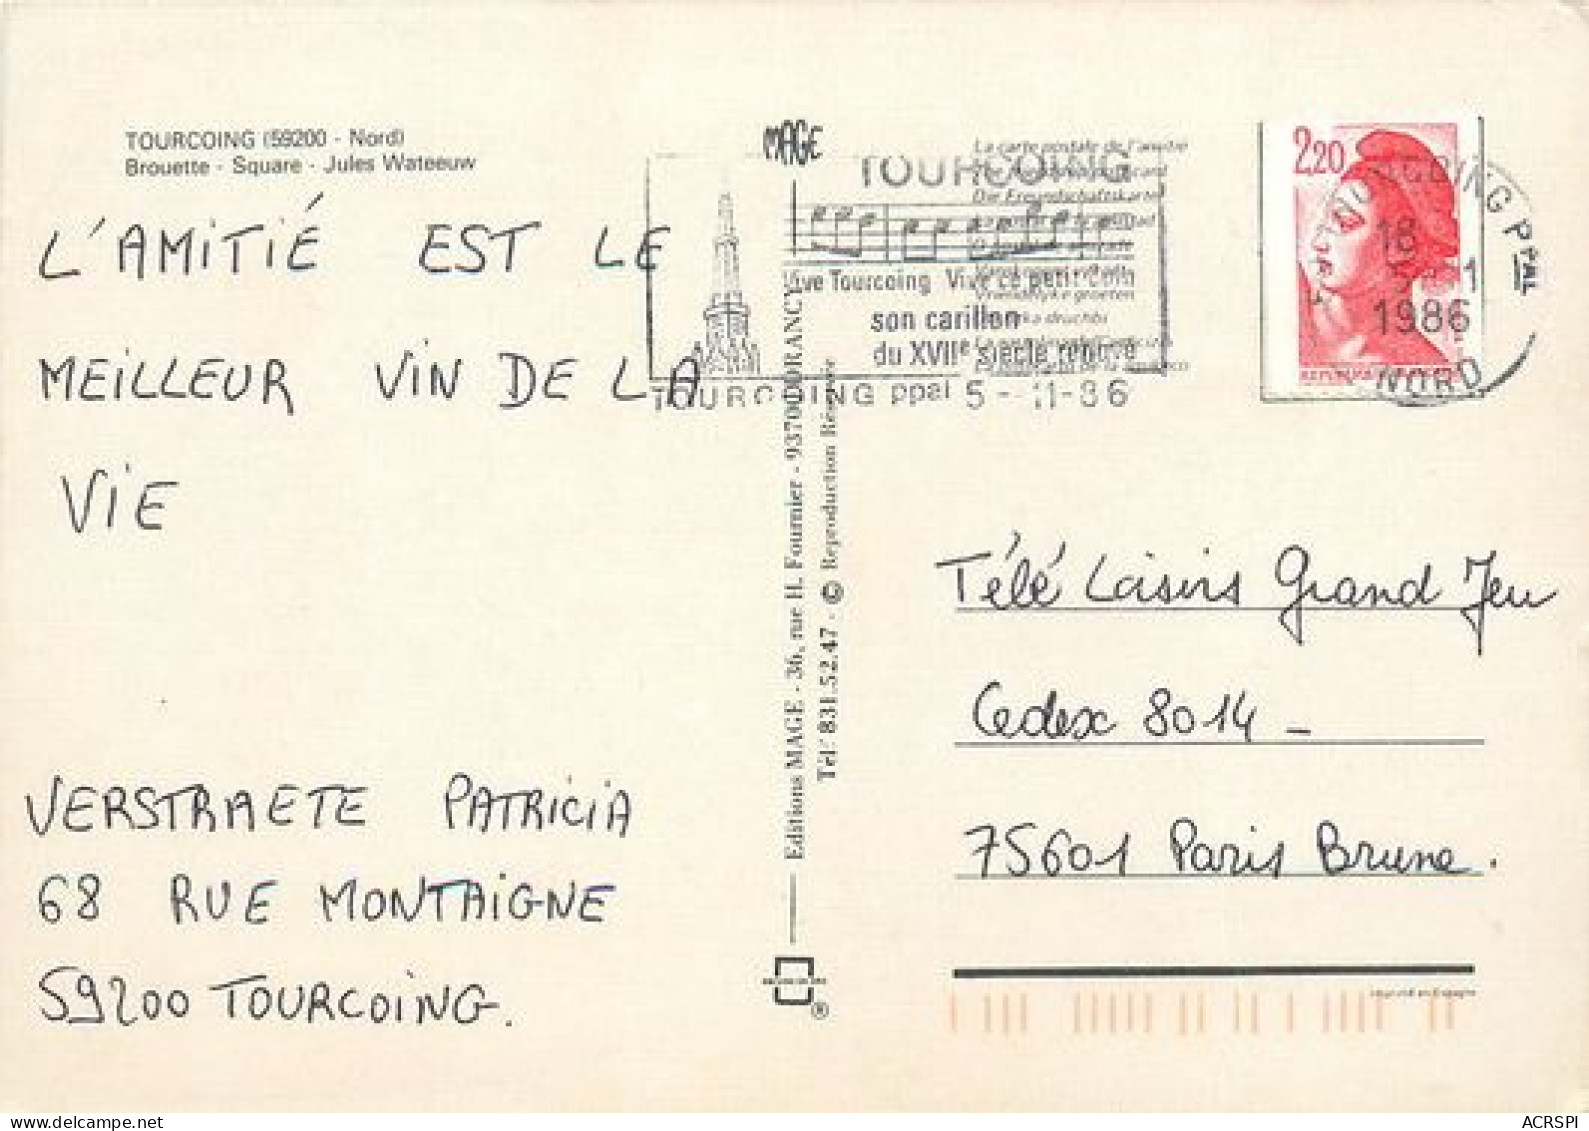 TOURCOING (59200 - Nord)
Brouette - Square - Jules Wateeuw
L'AMITIÉ EST LE
MEILLEUR VIN DE LA
VIE
VERSTRAETE PATRICIA
68 RUE MONTAIGNE
59200 TOURCOING.
MAGE
Editions MAGE - 36, rue H. Fournier - 93700 DRANCY
Tél: 831.52.47 - © Reproduction Réservée
®
TOURCOING
Vive Tourcoing Vive ce petit coin
son carillon
du XVIIe siècle rénové
TOURCOING ppal 5 - 11-86
La carte postale de l'amitié
Der Freundschaftskarte
Vriendelyke groeten
2,20
TOURCOING PPAL
18
5-11
1986
NORD
Télé Loisirs Grand Jeu
Cedex 8014 -
75601 Paris Brune.
ACRSPI